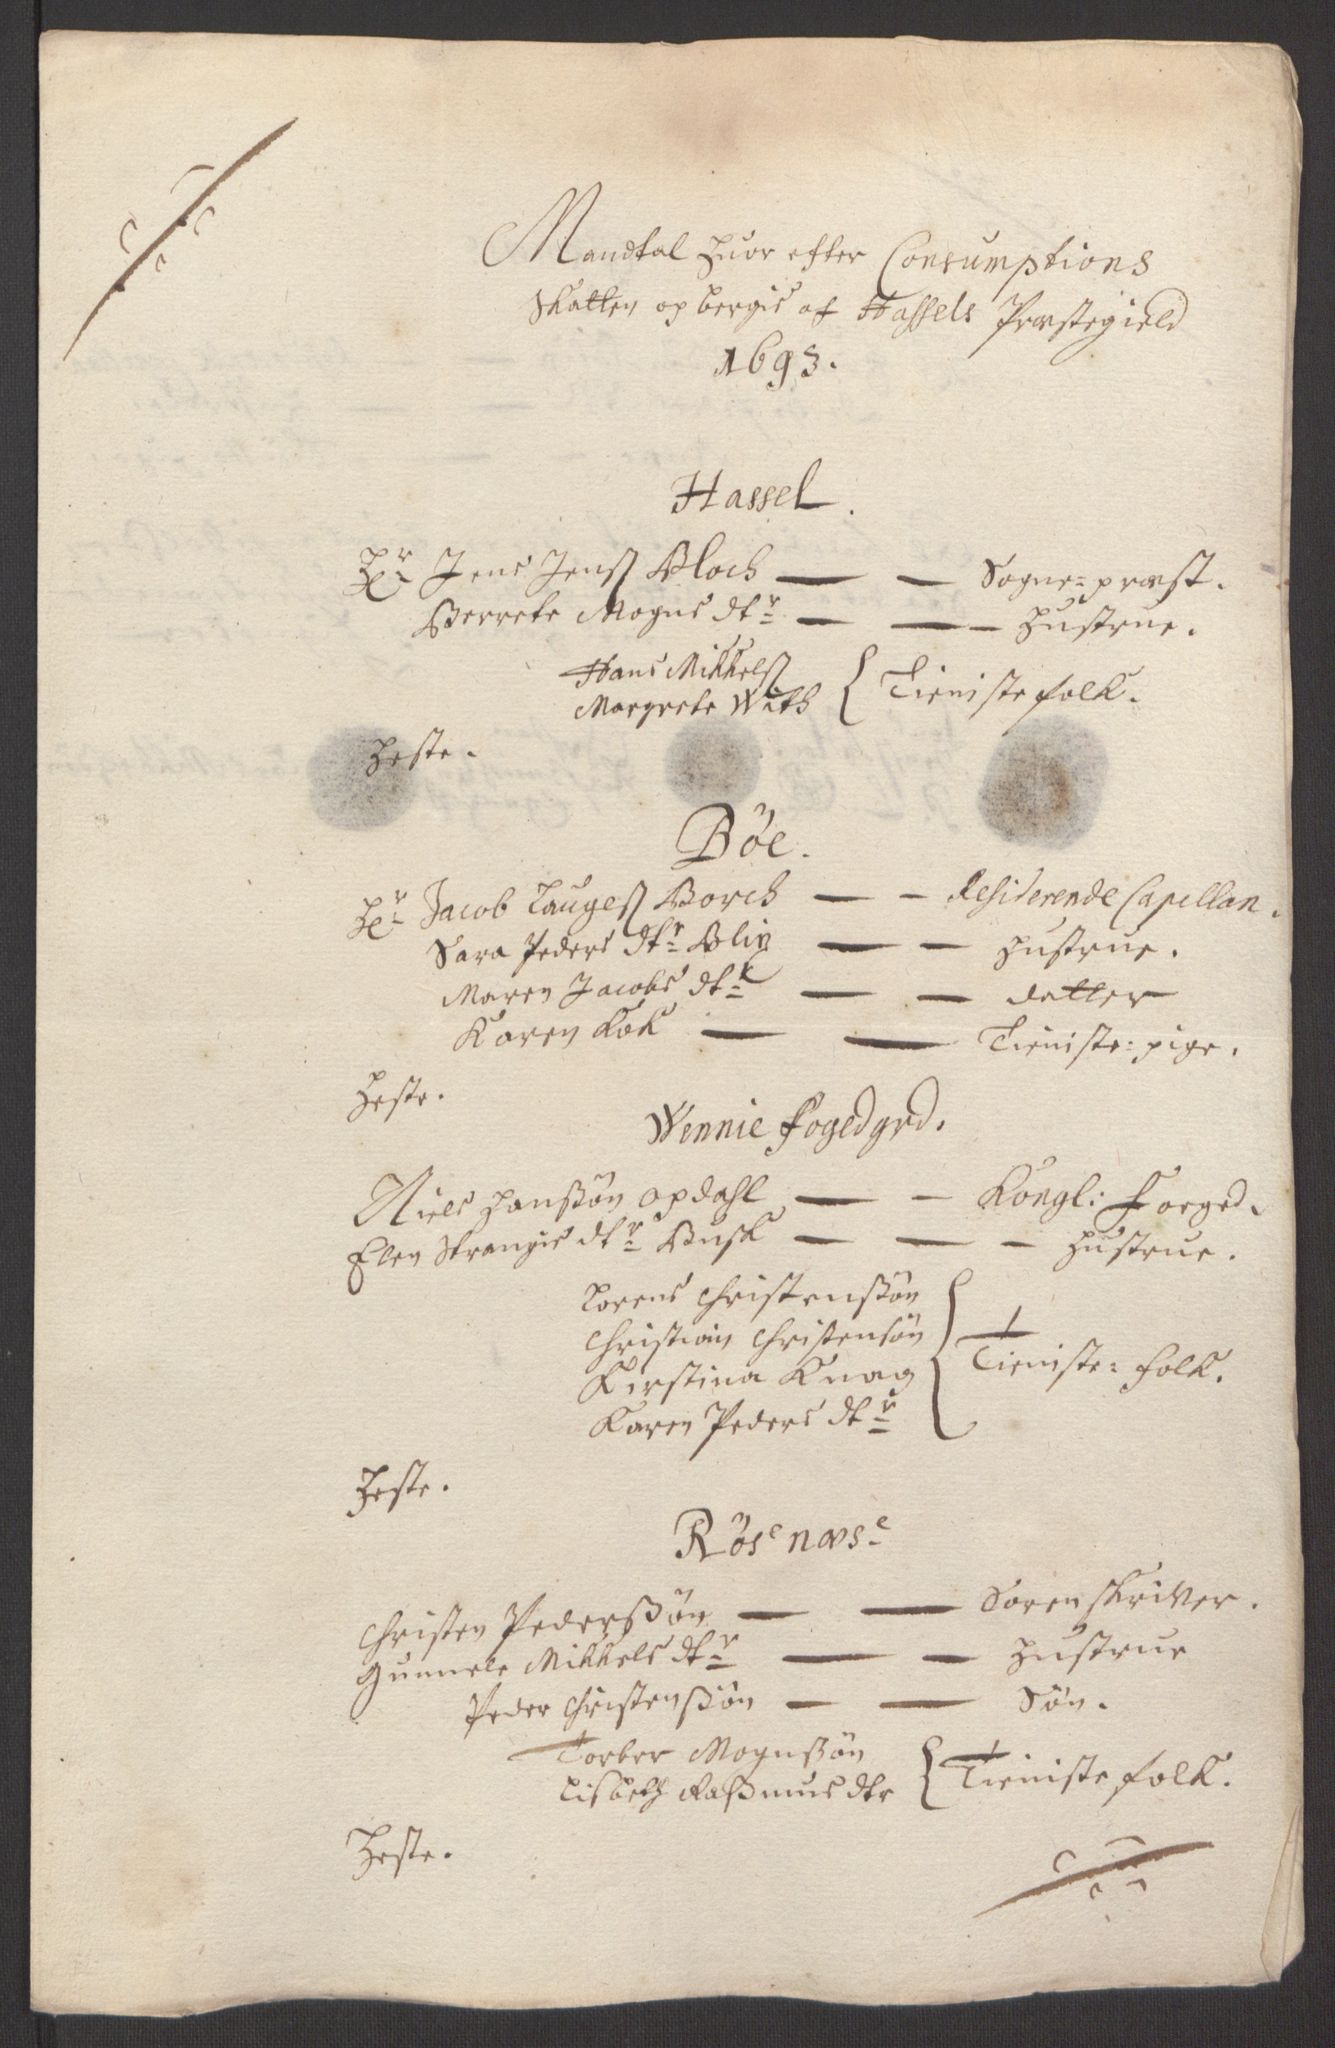 Mandtal huor efter Consumptions
Skatten opbergis af Hassels Præstegield
1693.
Hassel.
Hr Jens Jenss Bloch — — Sogne=præst.
Berrete Mogns dtr — — — Hustrue.
Hans Mikkelss
Margrete With { Tieniste folk.
Heste.
Böe.
Hr Jacob Laugess Borch — — Residerende Capellan.
Sara Peders dtr Blix — — Hustrue.
Maren Jacobs dtr — — datter
Karen Kok — — Tieniste=pige.
Heste.
Wennie fogedgrd.
Niels Hanssön Opdahl — — Kongl: Foeged.
Elen Strangis dtr Busk — — — Hustrue.
Lorens Christenssön
Christian Christensön
Kirstina Knag
Karen Peders dtr } Tieniste=folk.
Heste.
Rösenæs
Christen Pederssön — — Sorenskriver.
Gunnele Mikkels dtr — — Hustrue
Peder Christenssön — — Sön.
Torber Mognssön
Lisbeth Rassmus dtr { Tieniste folk.
Heste.